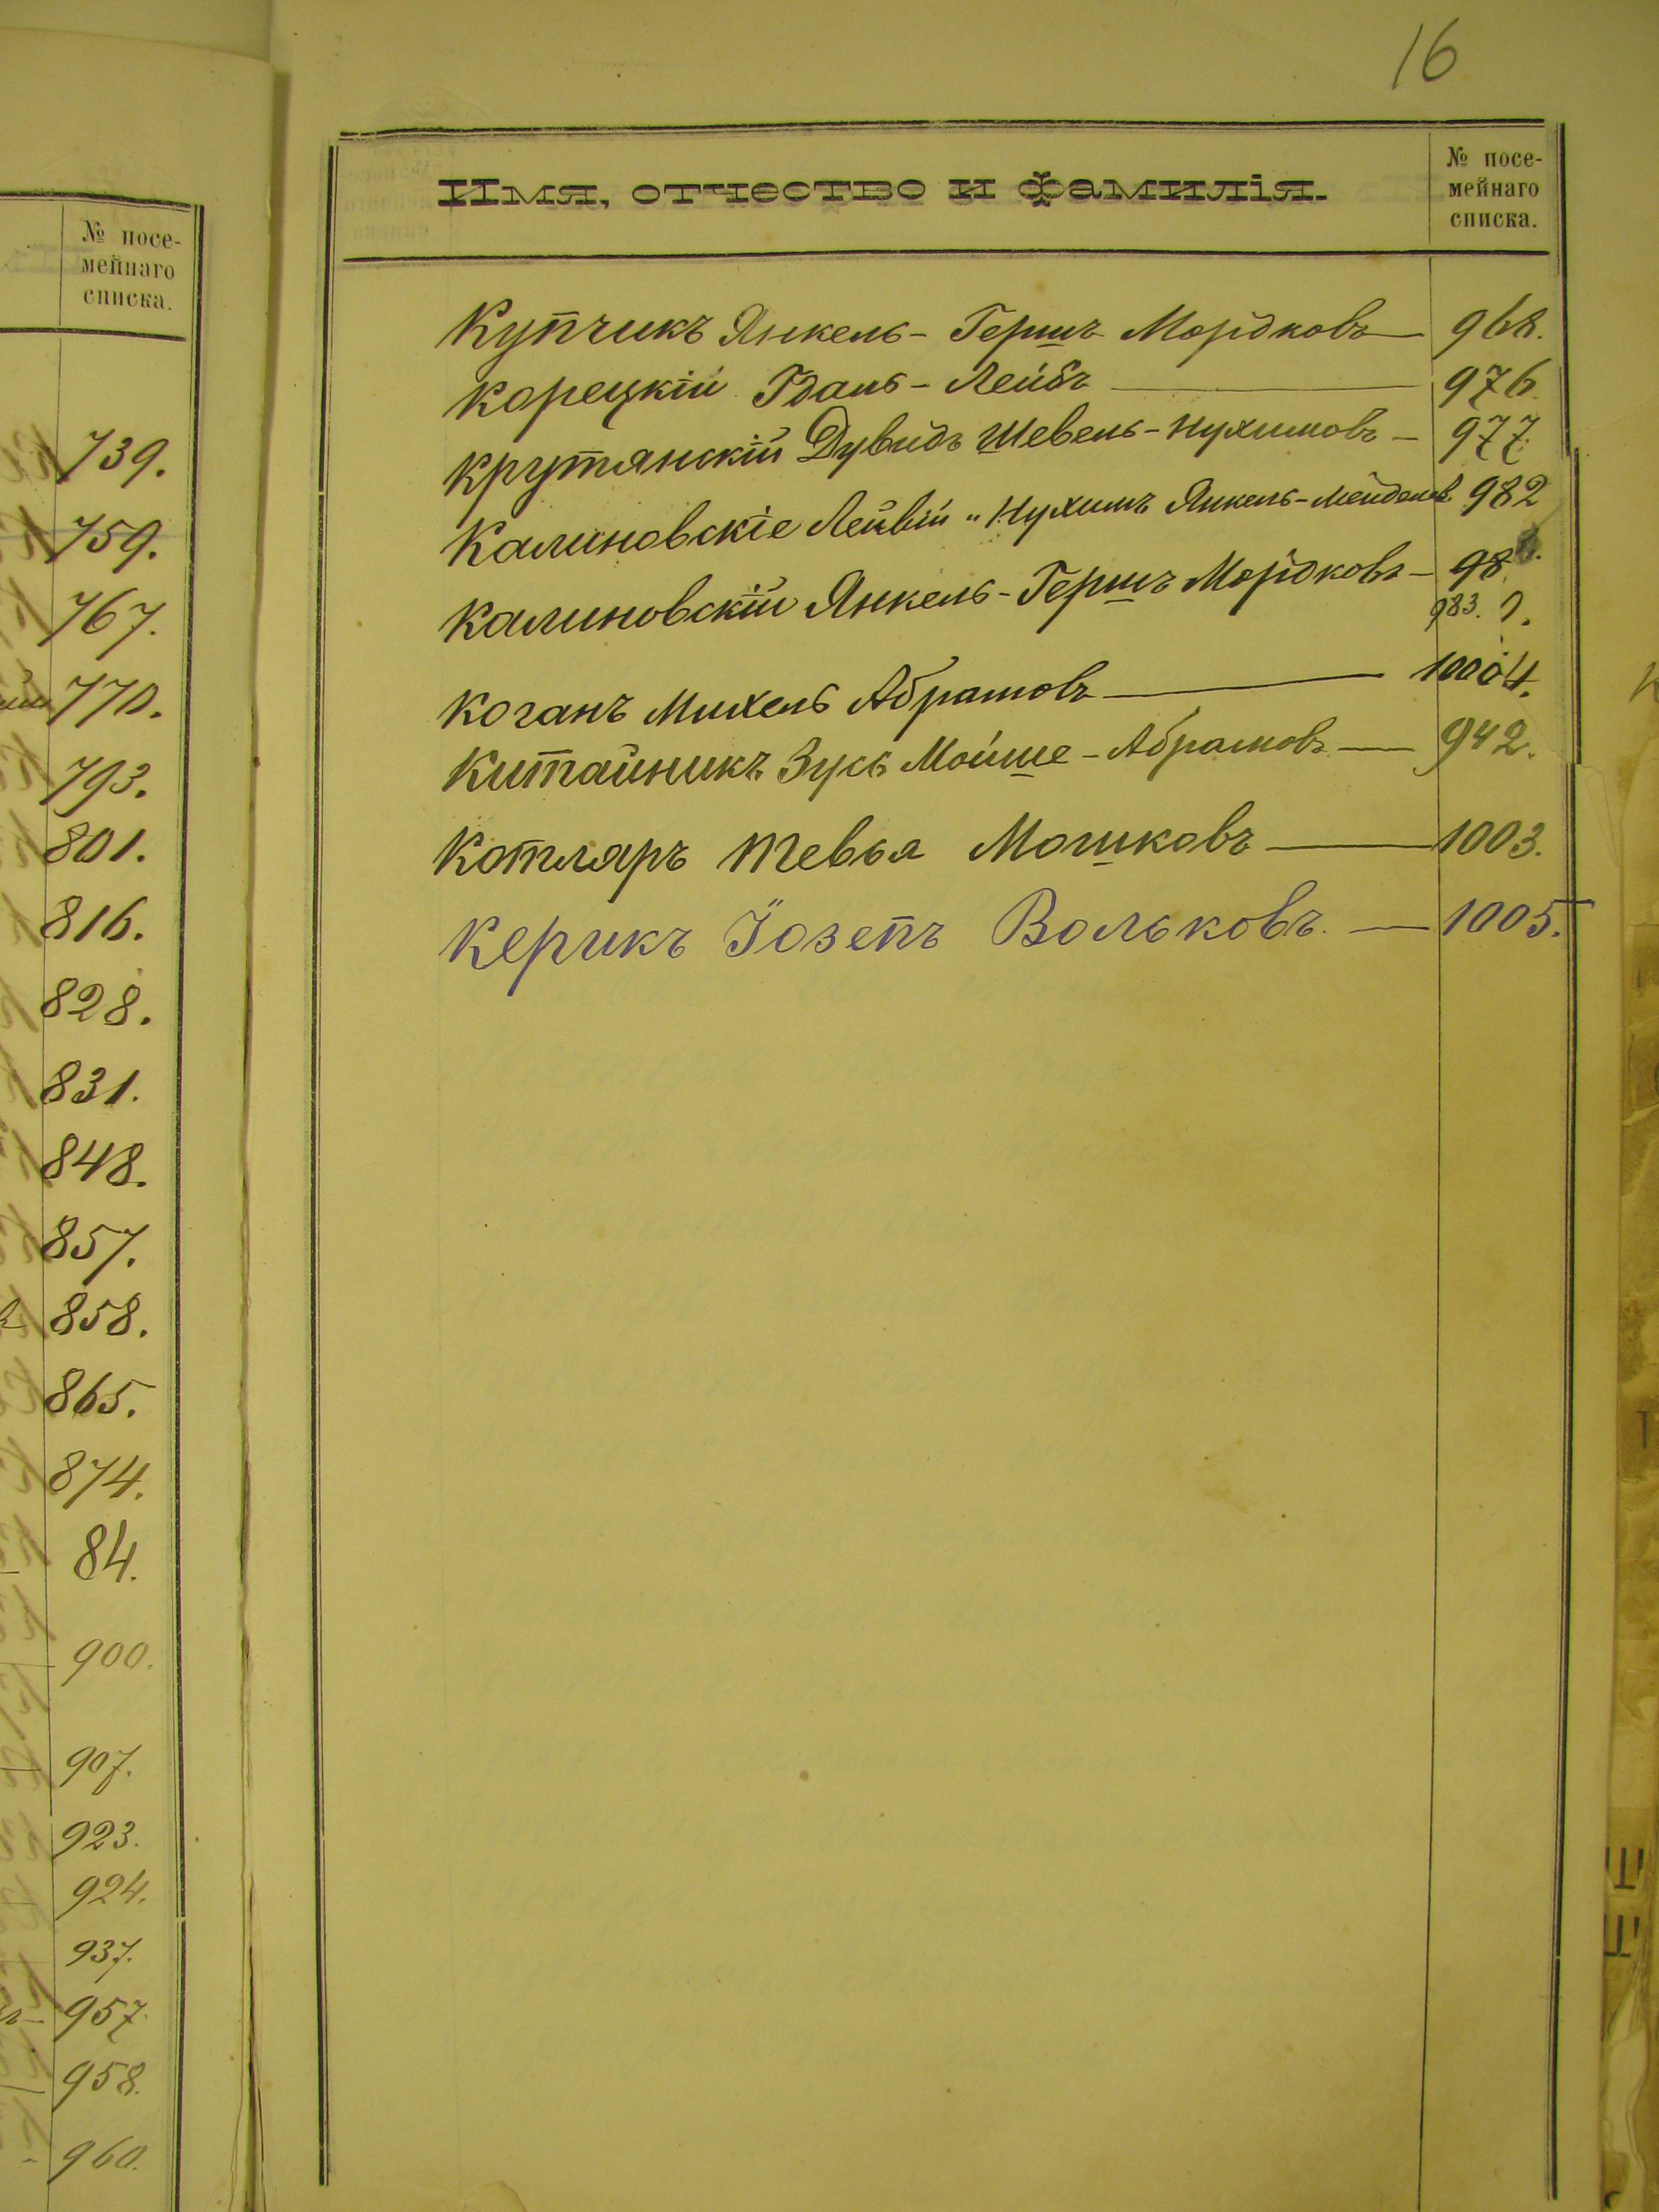 № посе-
мейнаго
списка.
739.
759.
767.
770.
793.
801.
816.
828.
831.
848.
857.
858.
865.
874.
84.
900.
907.
923.
924.
937.
957.
958.
960.
16
Имя, отчество и фамилія.
№ посе-
мейнаго
списка.
Купчикъ Янкель - Гершъ Мордковъ 968.
Корецкій Гдаль - Лейбъ 976
Крутянскій Дувидъ Шевель - Нухимовъ - 977.
Калиновскіе Лейвій и Нухимъ Янкель - Менделев. 982
Калиновскій Янкель - Гершъ Мордковъ - 98
983.
Коганъ Михель Абрамовъ 1004.
Китайникъ Зусь Мойше - Абрамовъ 942.
Котляръ Тевья Мошковъ 1003.
Керикъ Іозепъ Вольковъ. 1005.